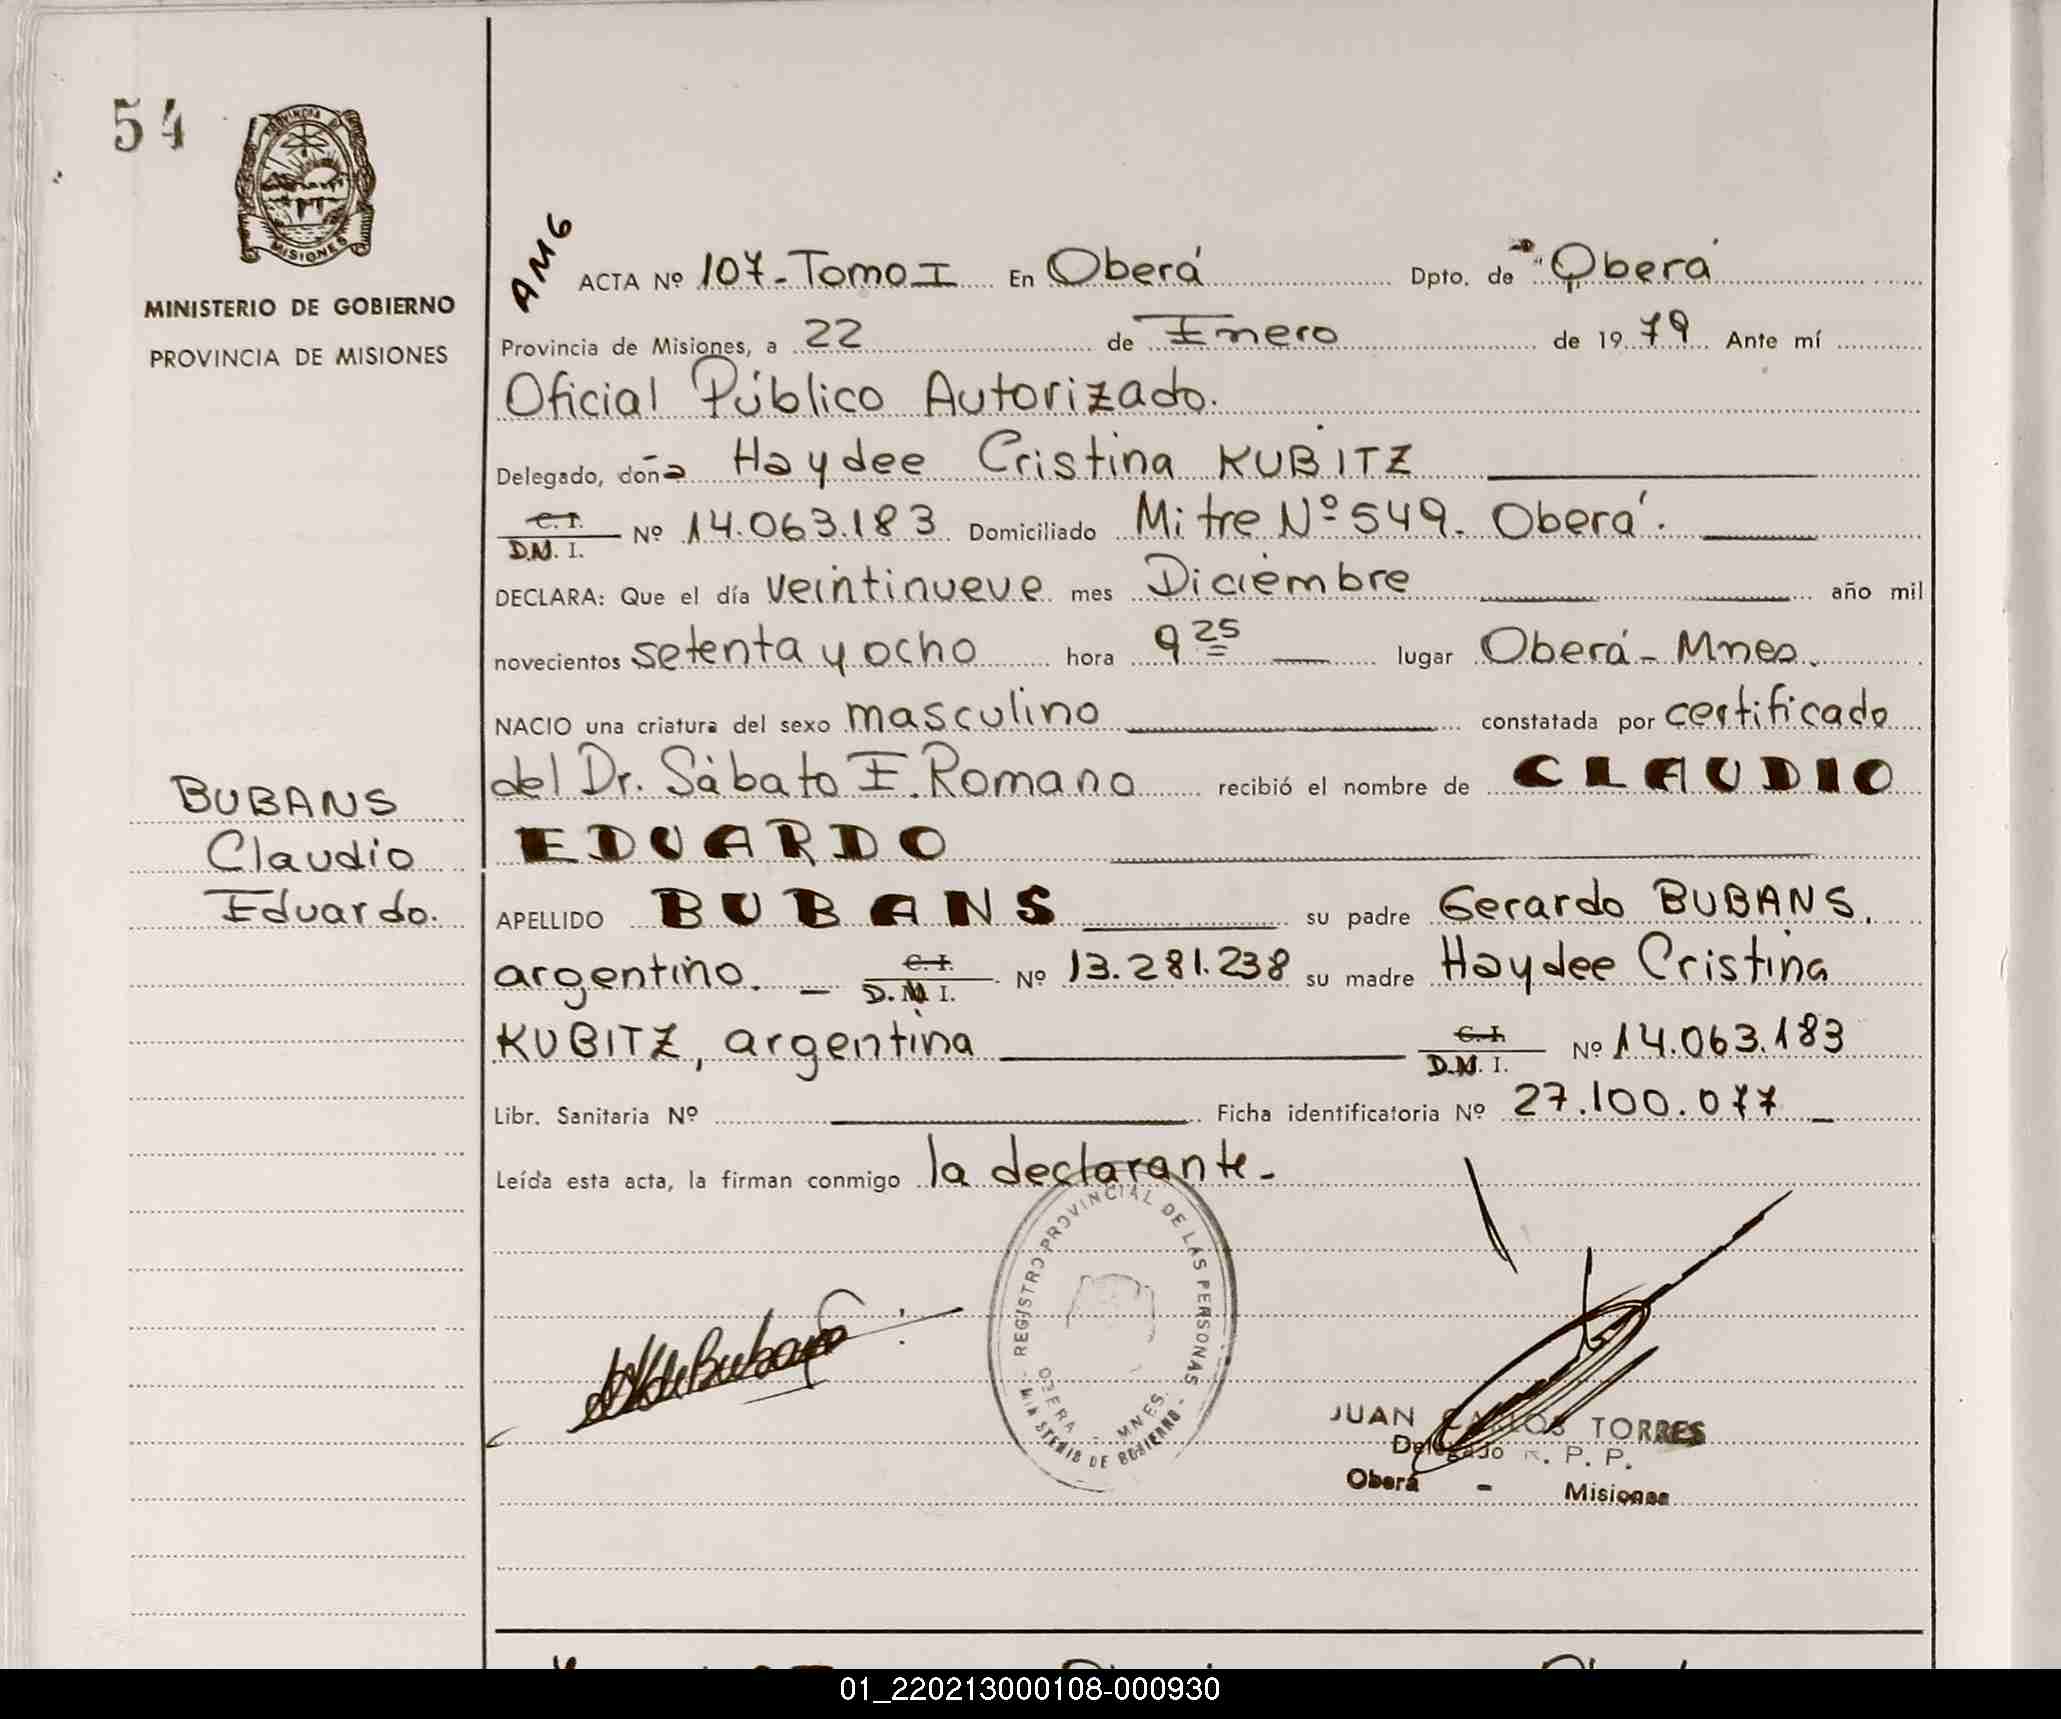 54
PROVINCIA DE
MISIONES
MINISTERIO DE GOBIERNO
PROVINCIA DE MISIONES
AMG
ACTA Nº 107-Tomo I En Oberá Dpto. de Oberá
Provincia de Misiones, a 22 de Enero de 1979 Ante mí
Oficial Público Autorizado.
Delegado, doña Haydee Cristina KUBITZ
C. I.
D.N. I. Nº 14.063.183 Domiciliado Mitre Nº 549. Oberá.
DECLARA: Que el día veintinueve mes Diciembre año mil
novecientos setenta y ocho hora 9 25 lugar Oberá - Mnes.
NACIO una criatura del sexo masculino constatada por certificado
del Dr. Sábato E. Romano recibió el nombre de CLAUDIO
EDUARDO
BUBANS
Claudio
Eduardo.
APELLIDO BUBANS su padre Gerardo BUBANS.
argentino. - C. I.
D. N. I. Nº 13.281.238 su madre Haydee Cristina
KUBITZ, argentina C. I.
D.N. I. Nº 14.063.183
Libr. Sanitaria Nº Ficha identificatoria Nº 27.100.077 -
Leída esta acta, la firman conmigo la declarante -
REGISTRO PROVINCIAL DE LAS PERSONAS
OBERA - MNES.
- MINISTERIO DE GOBIERNO -
JUAN CARLOS TORRES
Delegado R. P. P.
Oberá - Misiones
01_220213000108-000930